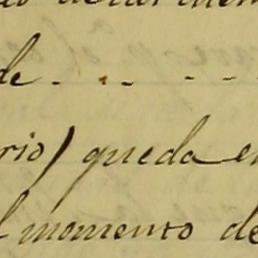 de . . . . - -
rio) queda e
l momento de